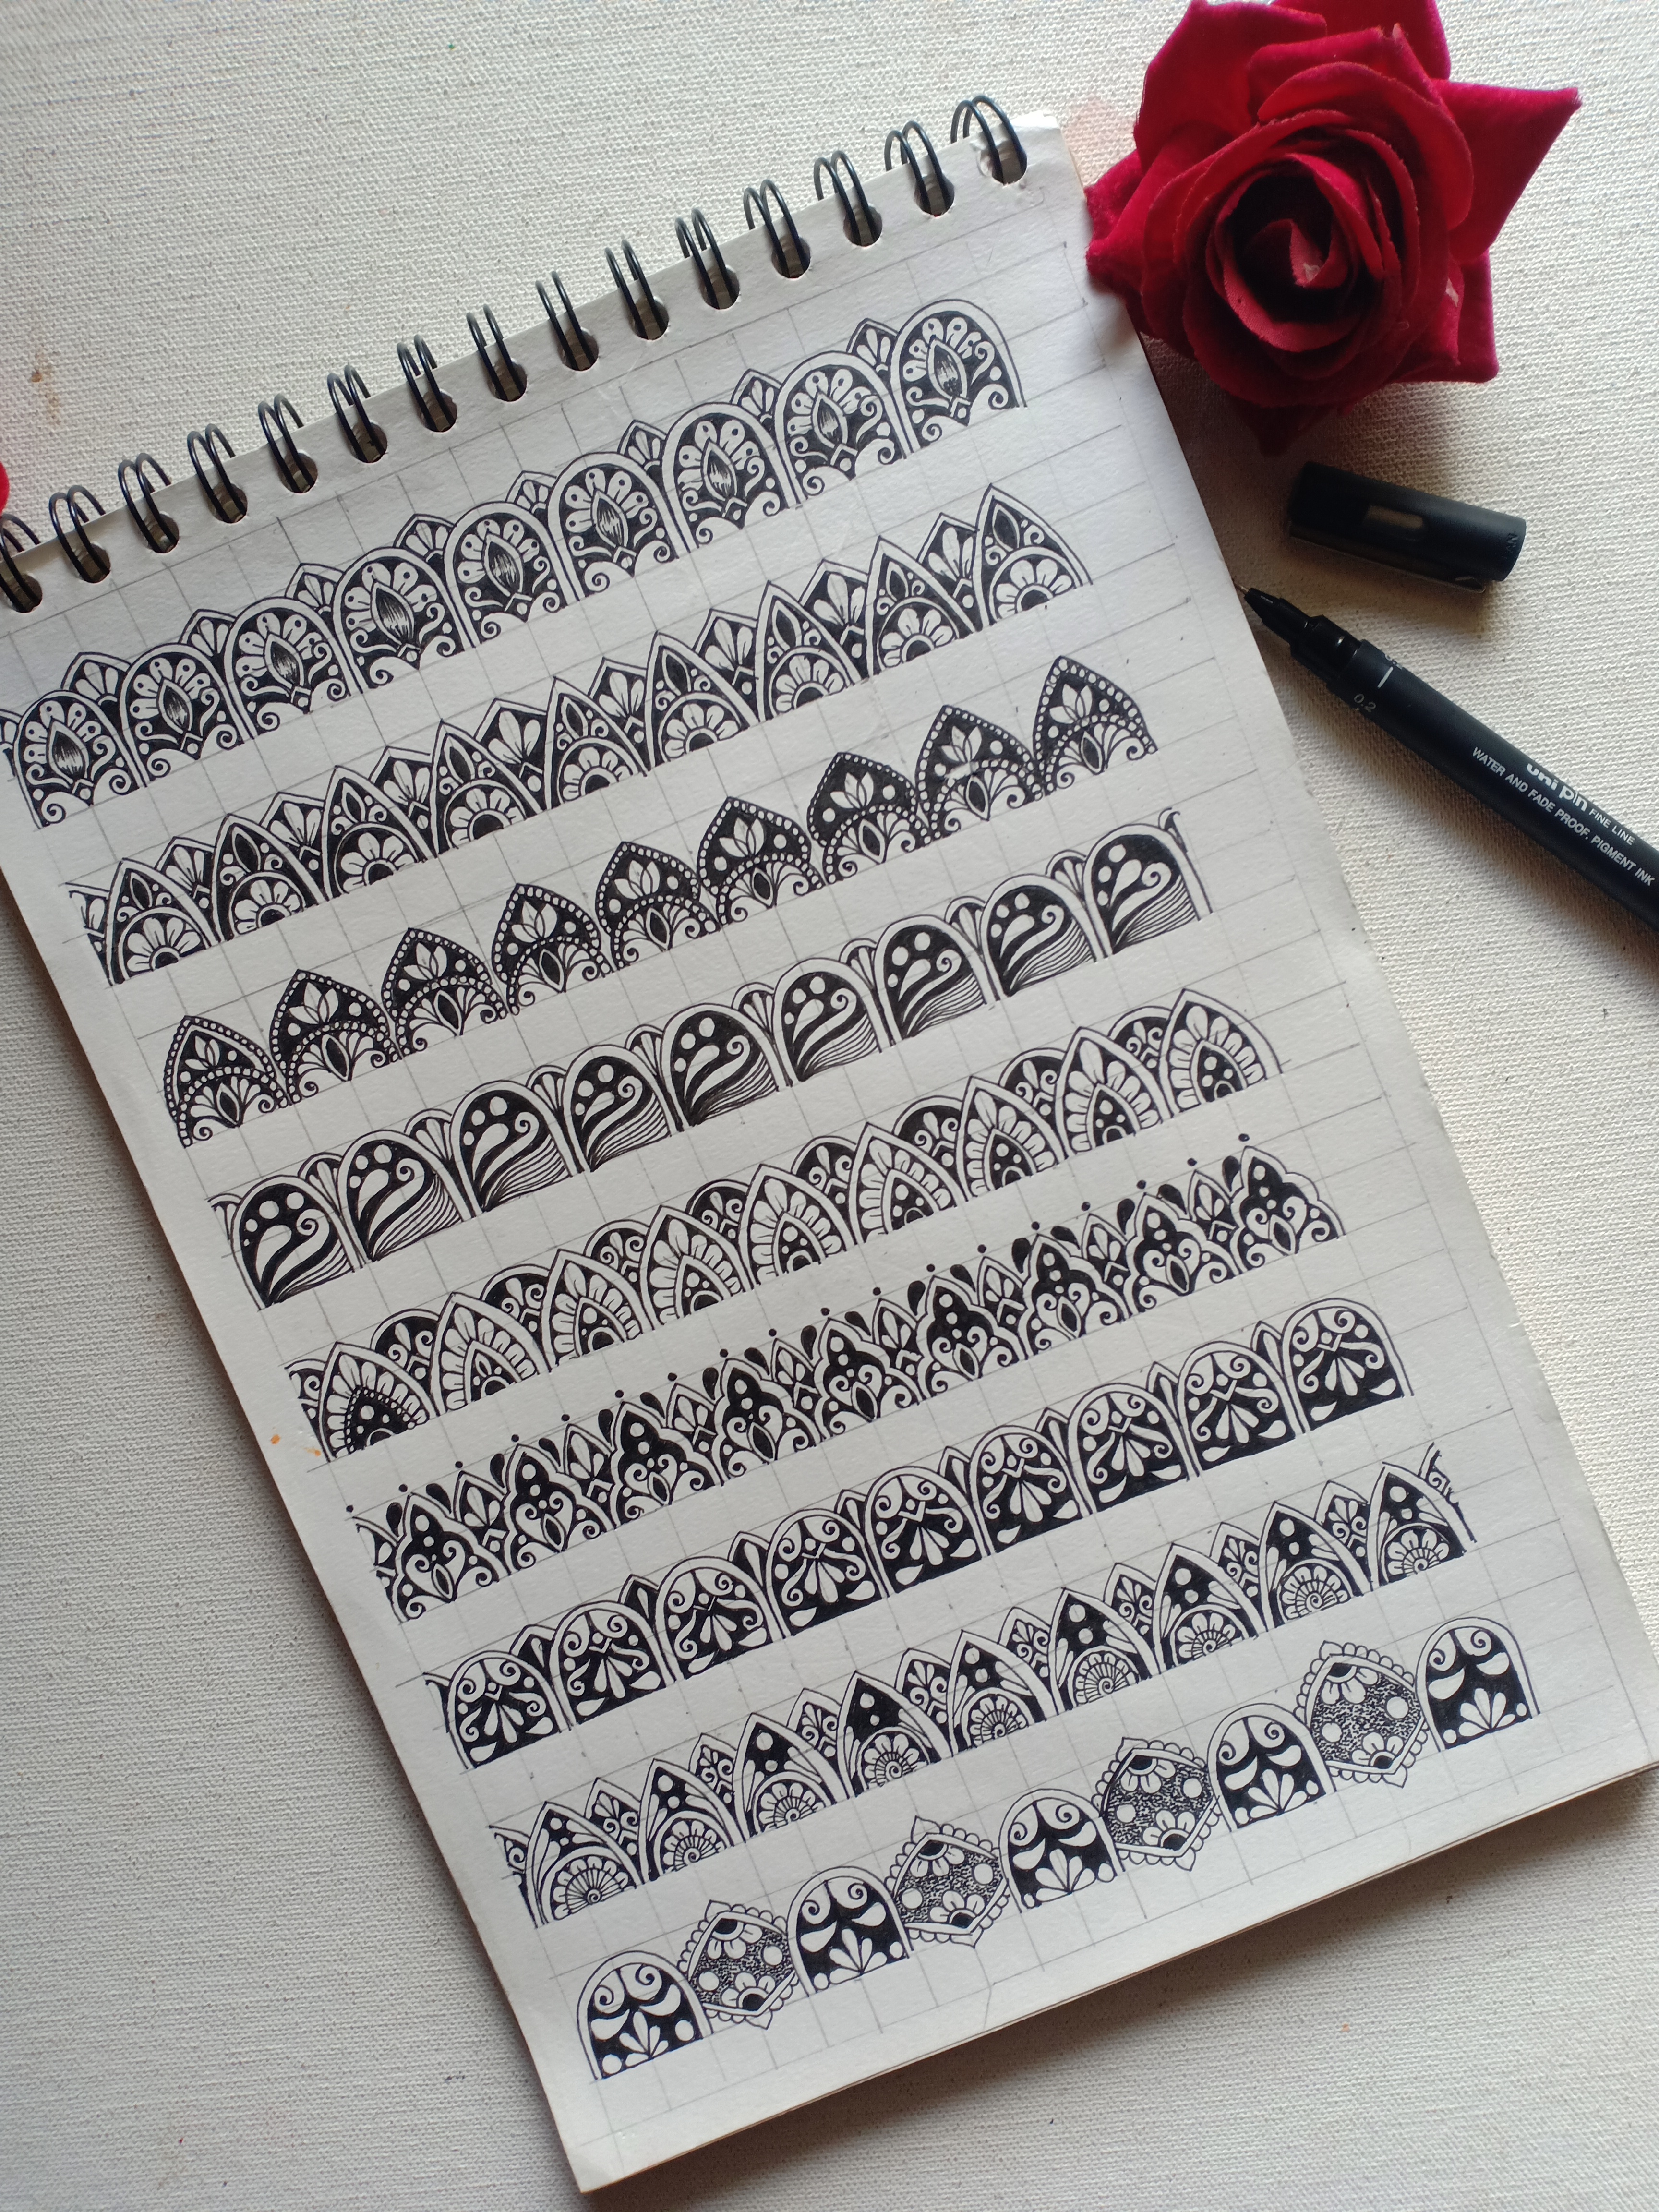 0.2
uni pin FINE LINE
WATER AND FADE PROOF, PIGMENT INK